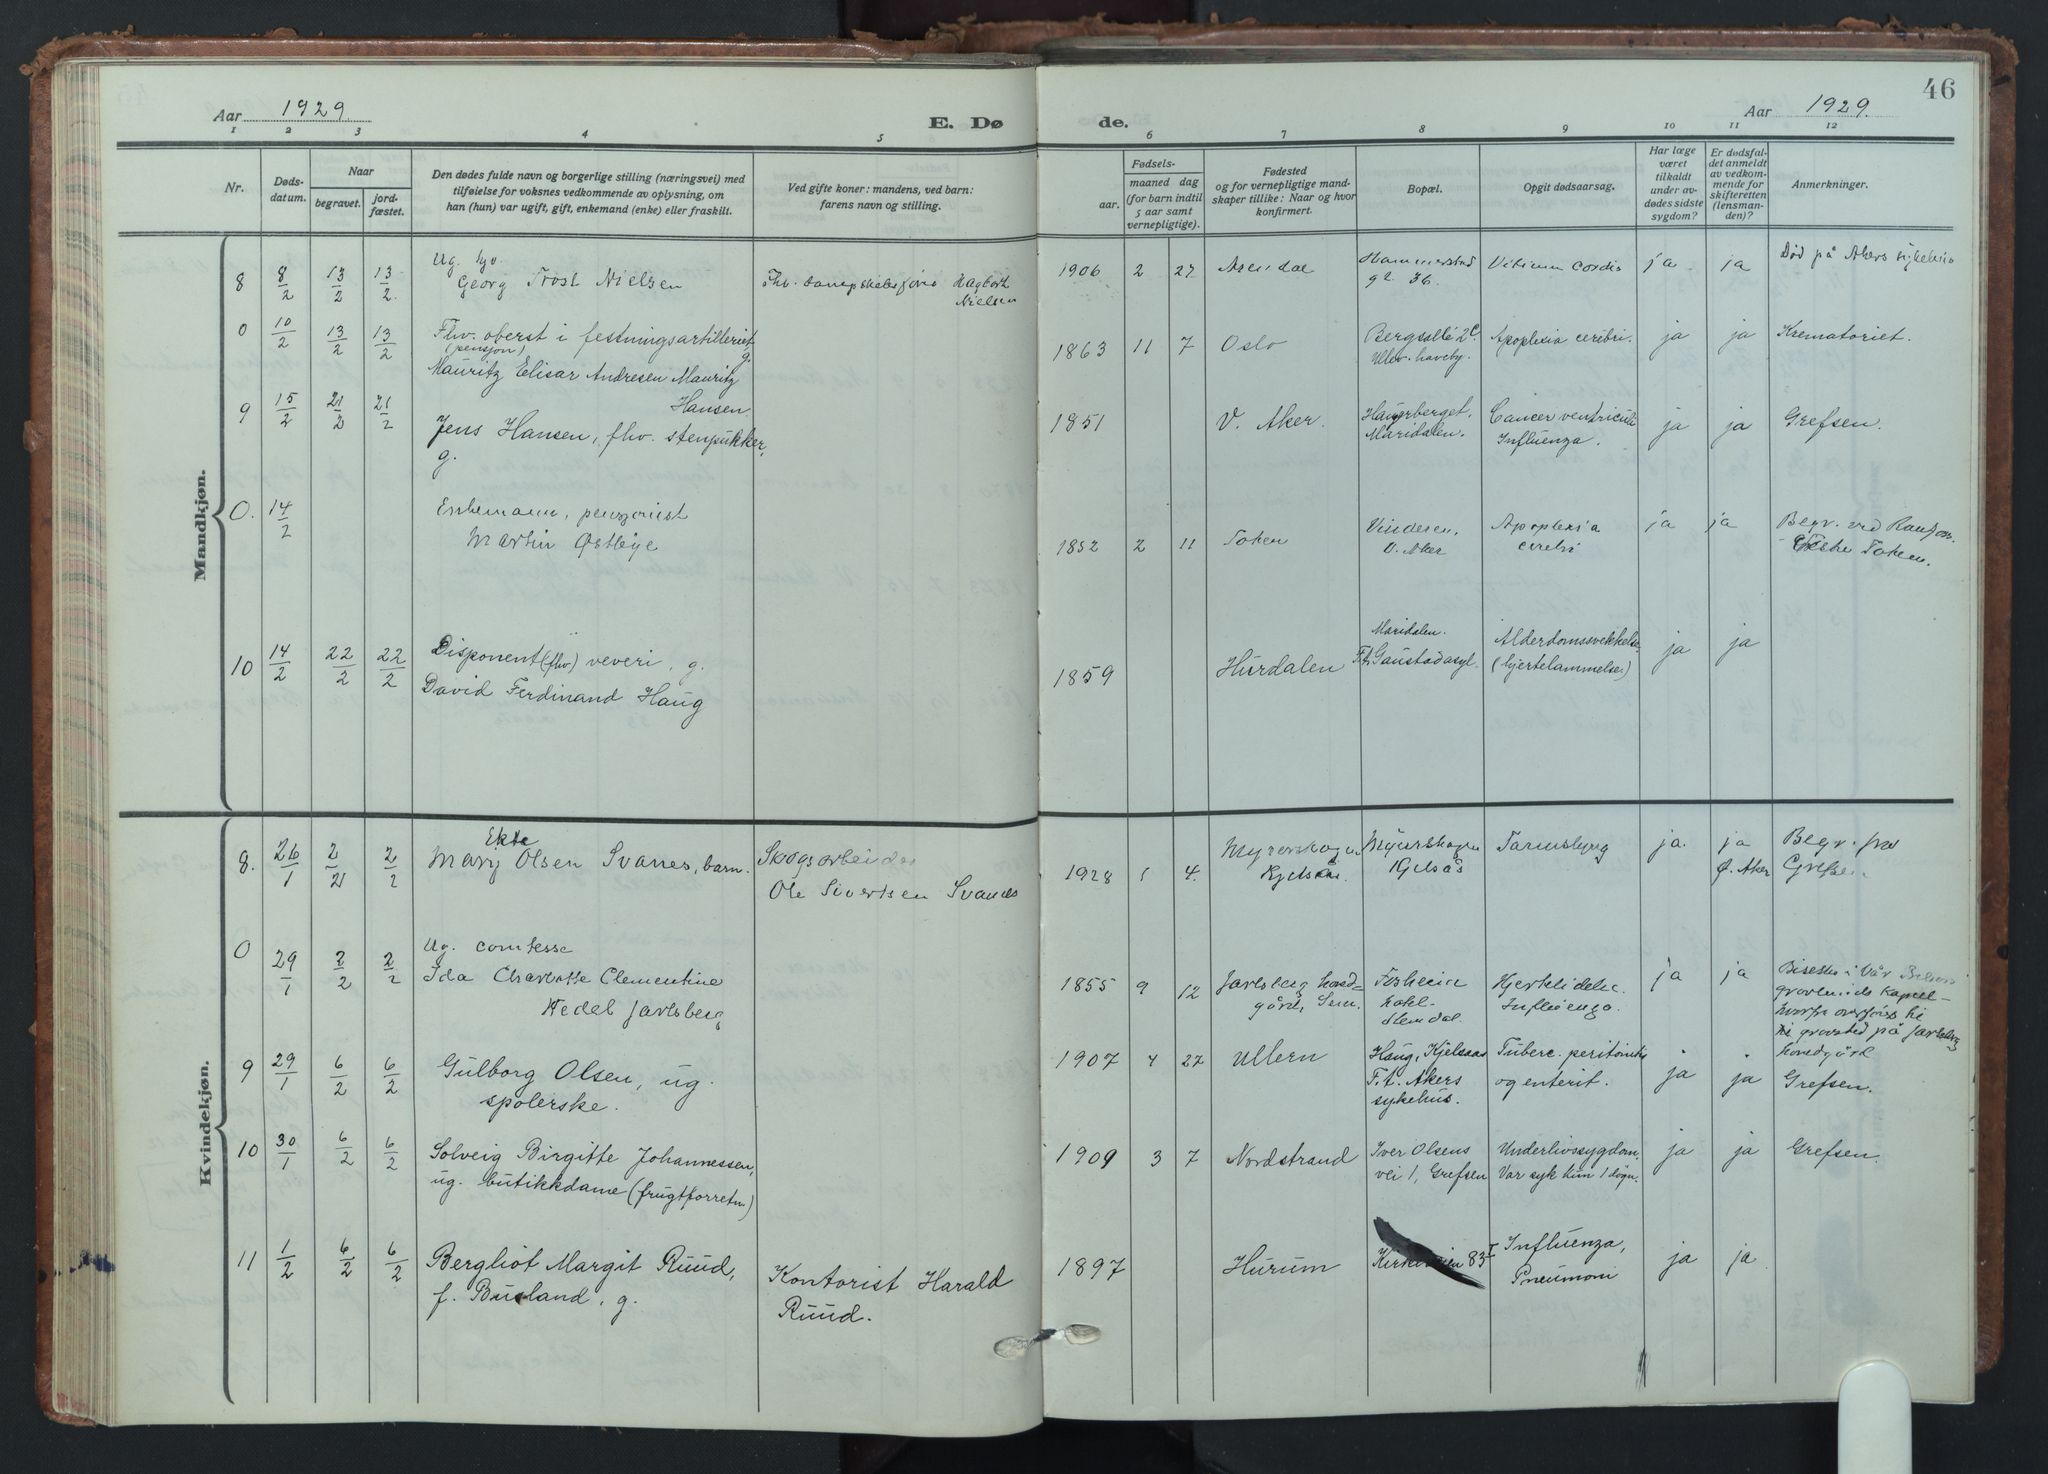 Aar 1929 E. Dø
de. Aar 1929. 46
1 2 3 4 5 6 7 8 9 10 11 12
Nr.
Døds-
datum.
Naar
begravet.
jord-
fæstet.
Den dødes fulde navn og borgerlige stilling (næringsvei) med
tilføielse for voksnes vedkommende av oplysning, om
han (hun) var ugift, gift, enkemand (enke) eller fraskilt.
Ved gifte koner: mandens, ved barn:
farens navn og stilling.
Fødsels-
aar.
maaned dag
(for barn indtil
5 aar samt
vernepligtige).
Fødested
og for vernepligtige mand-
skaper tillike: Naar og hvor
konfirmert.
Bopæl.
Opgit dødsaarsag.
Har læge
været
tilkaldt
under av-
dødes sidste
sygdom?
Er dødsfal-
det anmeldt
av vedkom-
mende for
skifteretten
(lensman-
den)?
Anmerkninger.
Mandkjøn.
8 8/2 13/2 13/2.
Ug.
Georg Trost Nielsen
Fhv. dampskibsfører Hagbart
Nielsen
1906 2 27 Arendal
Hammerstads
gt. 36.
Vitium cordis
ja ja
Død på Akers sykehus
0 10/2 13/2 13/2
Fhv. oberst i festningsartilleriet,
(pensjon) g.
Mauritz Elisar Andresen Mauritz
Hansen.
1863 11 7 Oslo
Bergsalle 2c.
Ullev. haveby.
Apoplexia cerebri.
ja ja Krematoriet.
9 15/2 21/2 21/2
Jens Hansen, fhv. stenpukker,
g.
1851 V. Aker.
Maridalen.
Cancer ventriculi
Influenza.
ja ja Grefsen.
0. 14/2
Enkemann, pensjonist
Martin Østbye
1852 2 11 Toten
Vinderen,
V. Aker
Apoplexia
cerebri
ja ja
Begr. ved
Toten.
10 14/2 22/2 22/2
Disponent (fhv) veveri, g.
David Ferdinand Haug
1859 Hurdalen
Maridalen.
F.t. Gaustadasyl.
Alderdomssvekkelse
(hjertelammelse)
ja ja
Kvindekjøn.
8. 26/1 2/2 2/2
Ekte
Mary Olsen Svanes, barn.
Skogsarbeider
Ole Sivertsen Svanes
1928 5 4.
Myrerskogen
Kjelsås.
Myrerskogen
Kjelsås
Tarmslyng
ja. ja
Ø. Aker
Begr. fra
Grefsen.
0 29/1 2/2 2/2
Ug. comtesse
Ida Charlotte Clementine
Wedel Jarlsberg
1855 9 12
Jarlsberg hoved=
gård, Sem.
hotel
Slemdal.
Hjertelidelse.
Influenza.
ja ja
Bisettes i Vår Frelsers
gravlunds kapel-
hvorfra overføres til
gravsted på Jarlsberg
hovedgård
9 29/1 6/2 6/2
Gulborg Olsen, ug.
spolerske.
1907 4 27 Ullern
Haug, Kjelsaas
F.t. Akers
sykehus.
Tuberc. peritonitis
og enterit.
ja ja Grefsen.
10 30/1 6/2 6/2
Solveig Birgitte Johannessen,
ug. butikkdame (frugtforretn)
1909 3 7 Nordstrand
Iver Olsens
vei 1, Grefsen
Underlivssygdom.
Var syk kun 1 døgn.
ja ja Grefsen.
11 1/2 6/2 6/2
Bergliot Margit Ruud,
f. Busland, g.
Kontorist Harald
Ruud.
1897 Hurum
Kirkeveien 83 I
Influenza,
Pneumoni
ja ja